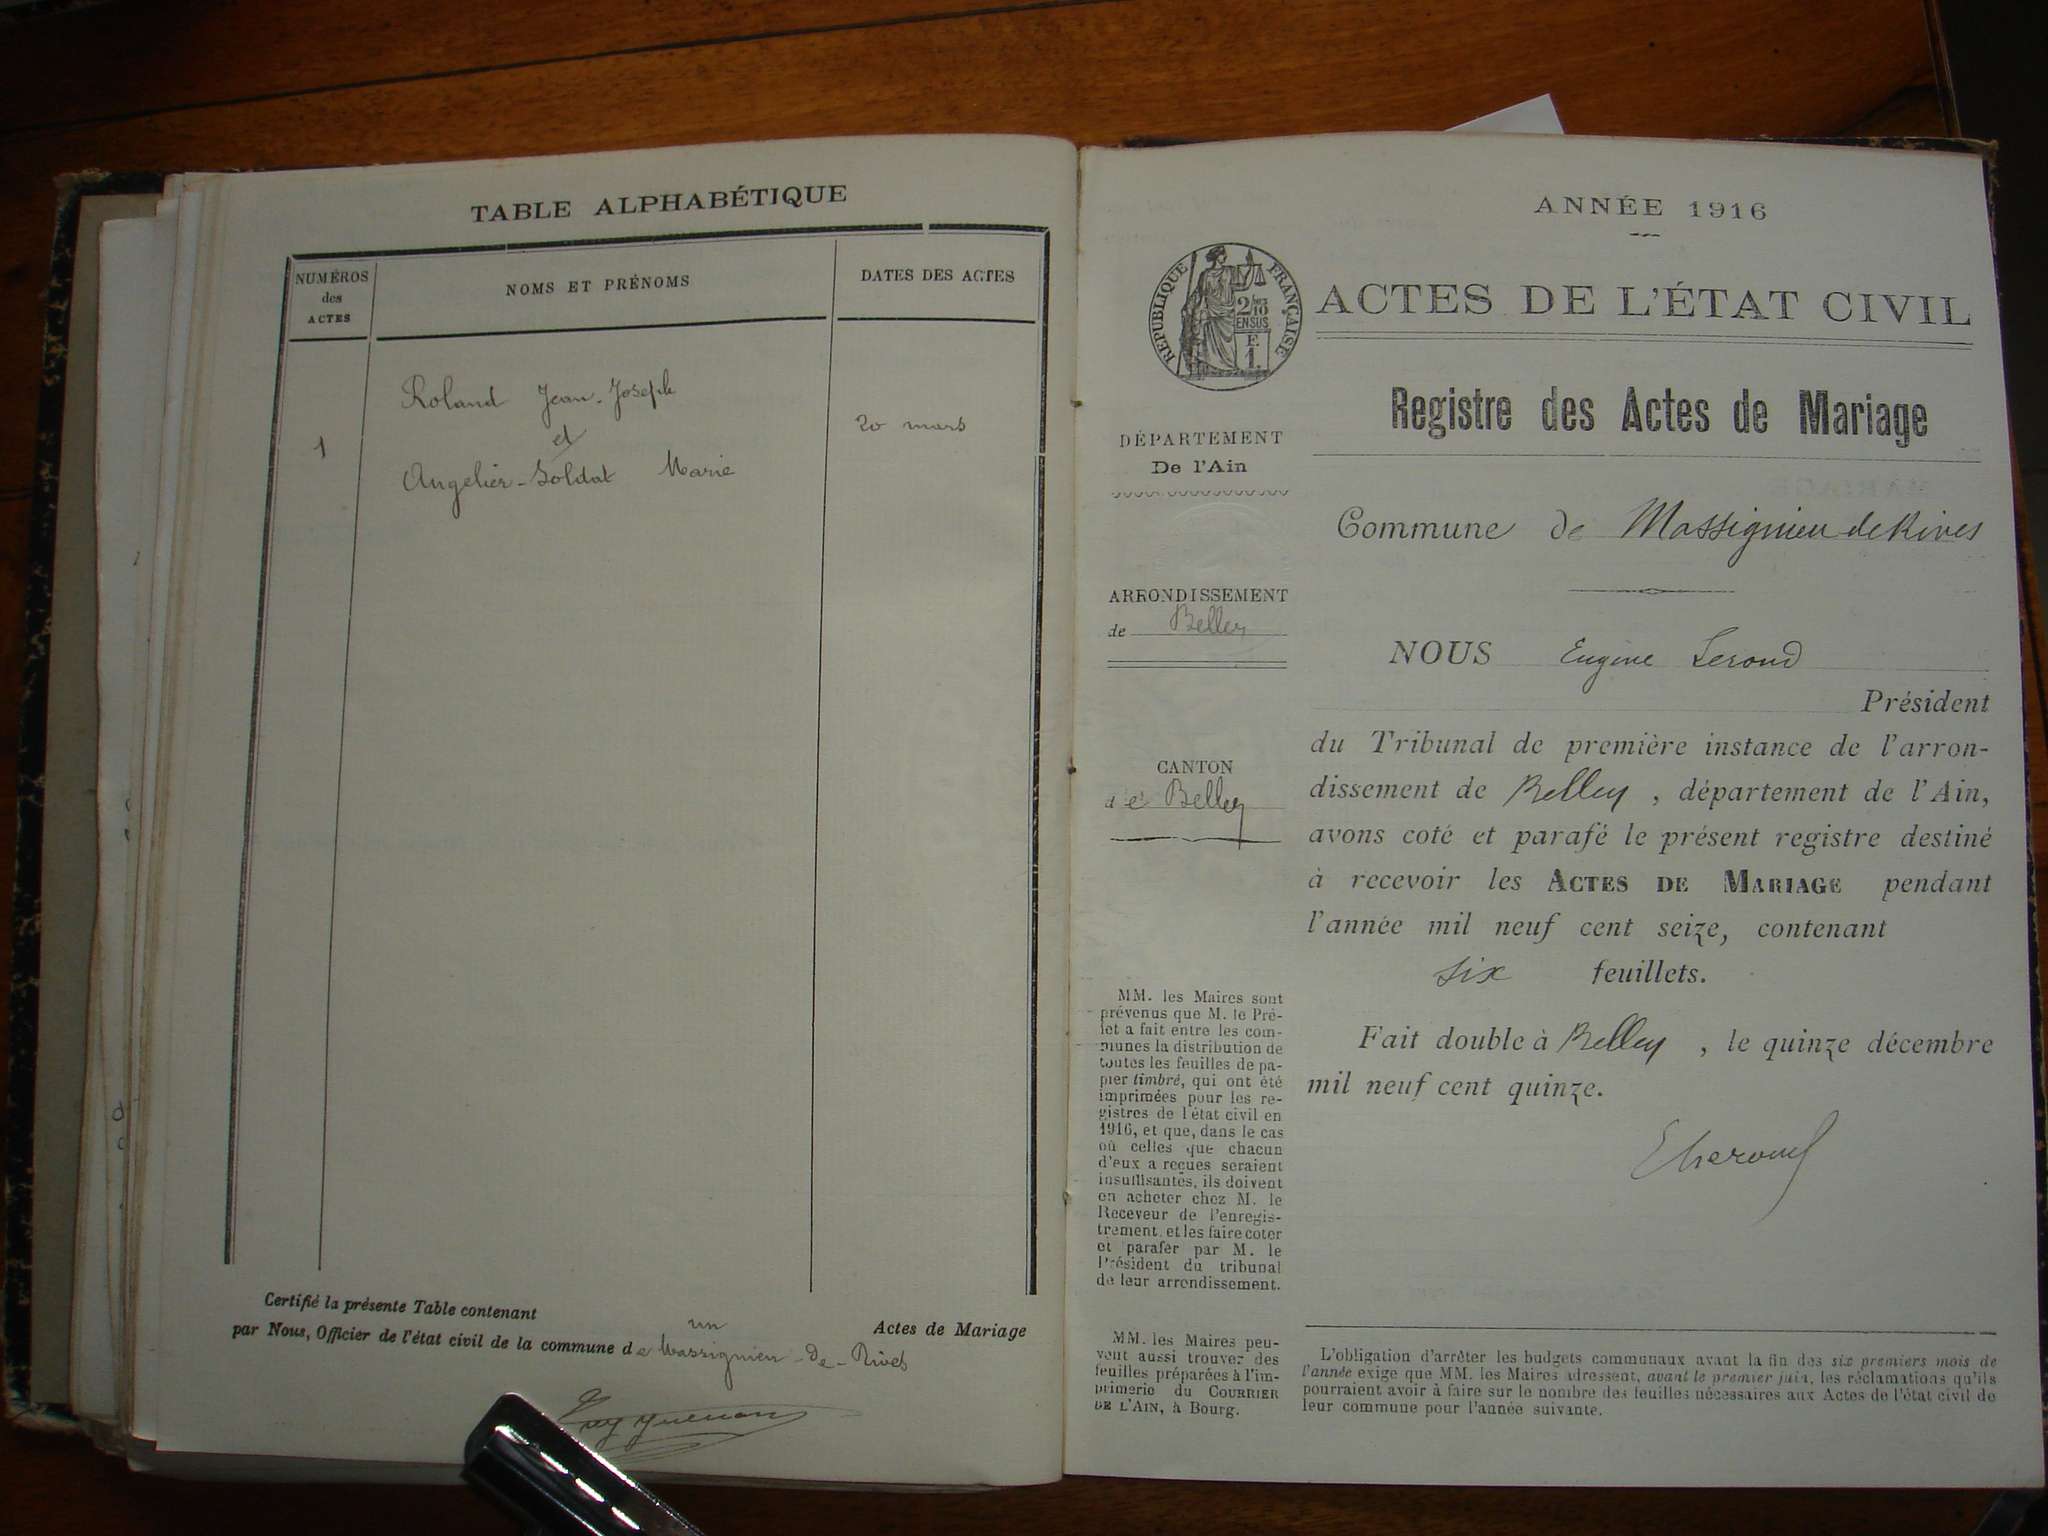 TABLE ALPHABÉTIQUE
NUMÉROS
des
ACTES
NOMS ET PRÉNOMS
DATES DES ACTES
Roland Jean-Joseph
et
1
20 mars
Angelier-Soldat Marie
Certifié la présente Table contenant un Actes de Mariage
par Nous, Officier de l'état civil de la commune de Massignieu-de-Rives
ANNÉE 1916
RÉPUBLIQUE FRANÇAISE
2/10
EN SUS
F.
1.
ACTES DE L'ÉTAT CIVIL
Registre des Actes de Mariage
DÉPARTEMENT
De l'Ain
Commune de Massignieu de Rives
ARRONDISSEMENT
de Belley
CANTON
de Belley
MM. les Maires sont
prévenus que M. le Pré-
fet a fait entre les com-
munes la distribution de
toutes les feuilles de pa-
pier timbré, qui ont été
imprimées pour les re-
gistres de l'état civil en
1916, et que, dans le cas
où celles que chacun
d'eux a reçues seraient
insuffisantes, ils doivent
en acheter chez M. le
Receveur de l'enregis-
trement, et les faire coter
et parafer par M. le
Président du tribunal
de leur arrondissement.
MM. les Maires peu-
vent aussi trouver des
feuilles préparées à l'im-
primerie du COURRIER
DE L'AIN, à Bourg.
NOUS Eugène Lerond
Président
du Tribunal de première instance de l'arron-
dissement de Belley, département de l'Ain,
avons coté et parafé le présent registre destiné
à recevoir les ACTES DE MARIAGE pendant
l'année mil neuf cent seize, contenant
six feuillets.
Fait double à Belley, le quinze décembre
mil neuf cent quinze.
L'obligation d'arrêter les budgets communaux avant la fin des six premiers mois de
l'année exige que MM. les Maires adressent, avant le premier juin, les réclamations qu'ils
pourraient avoir à faire sur le nombre des feuilles nécessaires aux Actes de l'état civil de
leur commune pour l'année suivante.